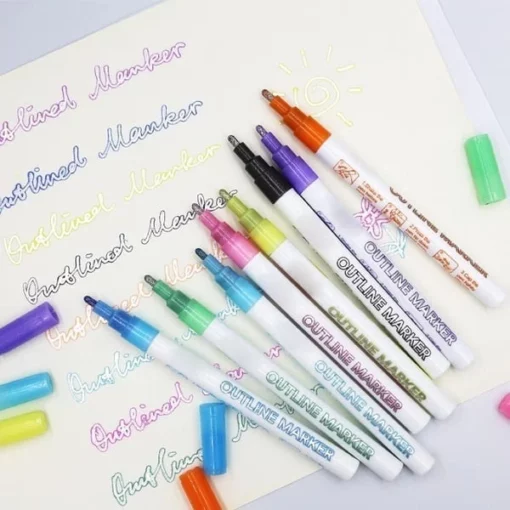 Outlined Marker
Outlined Marker
Outlined Marker
Outlined Marker
Outlined
Outlined
Outlined
Outlined
OUTLINE MARKER
OUTLINE MARKER
OUTLINE MARKER
OUTLINE MARKER
OUTLINE MARKER
OUTLINE MARKER
OUTLINE MARKER